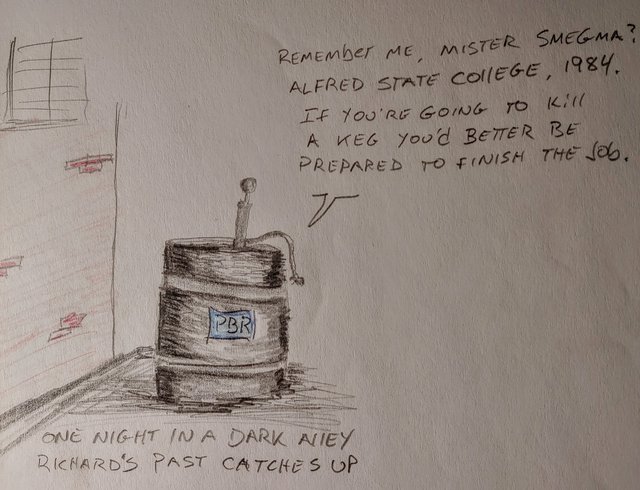 REMEMBER ME, MISTER SMEGMA?
ALFRED STATE COllEGE, 1984.
If YOU'RE GOING TO Kill
A KEG YOU'D BETTER BE
PREPARED TO FINISH THE JOb.
PBR
ONE NIGHT IN A DARK AllEY
RICHARD'S PAST CATCHES UP